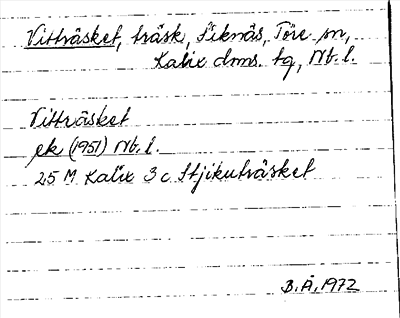 Vitträsket, träsk, Siknäs, Töre sn,
Kalix dms. tg, Nb. l.
Vitträsket
ek (1951) Nb. l.
25 M Kalix 3 c Stjikuträsket
B.Å. 1972